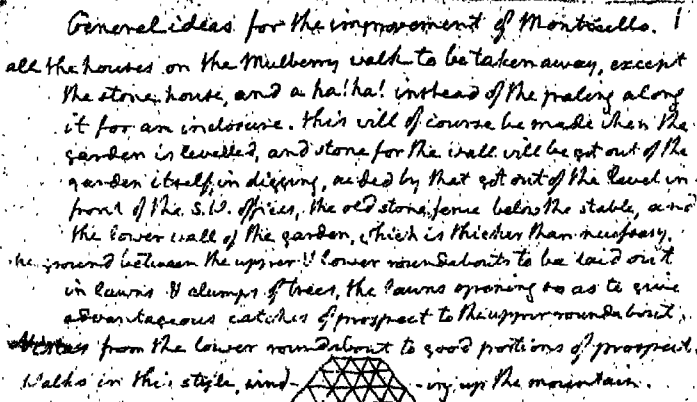 General ideas for the improvement of Monticello. 1
all the houses on the Mulberry walk to be taken away, except
the stone house, and a ha! ha! instead of the paling along
it for an inclosure. this will of course be made when the
garden is levelled, and stone for the wall will be got out of the
garden itself, in digging, aided by that got out of the level in
front of the S.W. offices, the old stone fence below the stable, and
the lower wall of the garden, which is thicker than necessary.
the ground between the upper & lower roundabouts to be laid out
in lawns & clumps of trees, the lawns opening so as to give
advantageous catches of prospect to the upper roundabout.
Vistas from the lower roundabout to good portions of prospect.
Walks in this style, wind- -ing up the mountain.